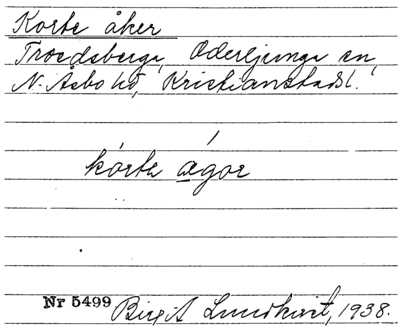 Korta åker
Troedsberga, Oderljunga sn,
N. Åsbo hd, Kristianstads l.
kórta ægor
Nr 5499 Birgit Lundkvist, 1938.